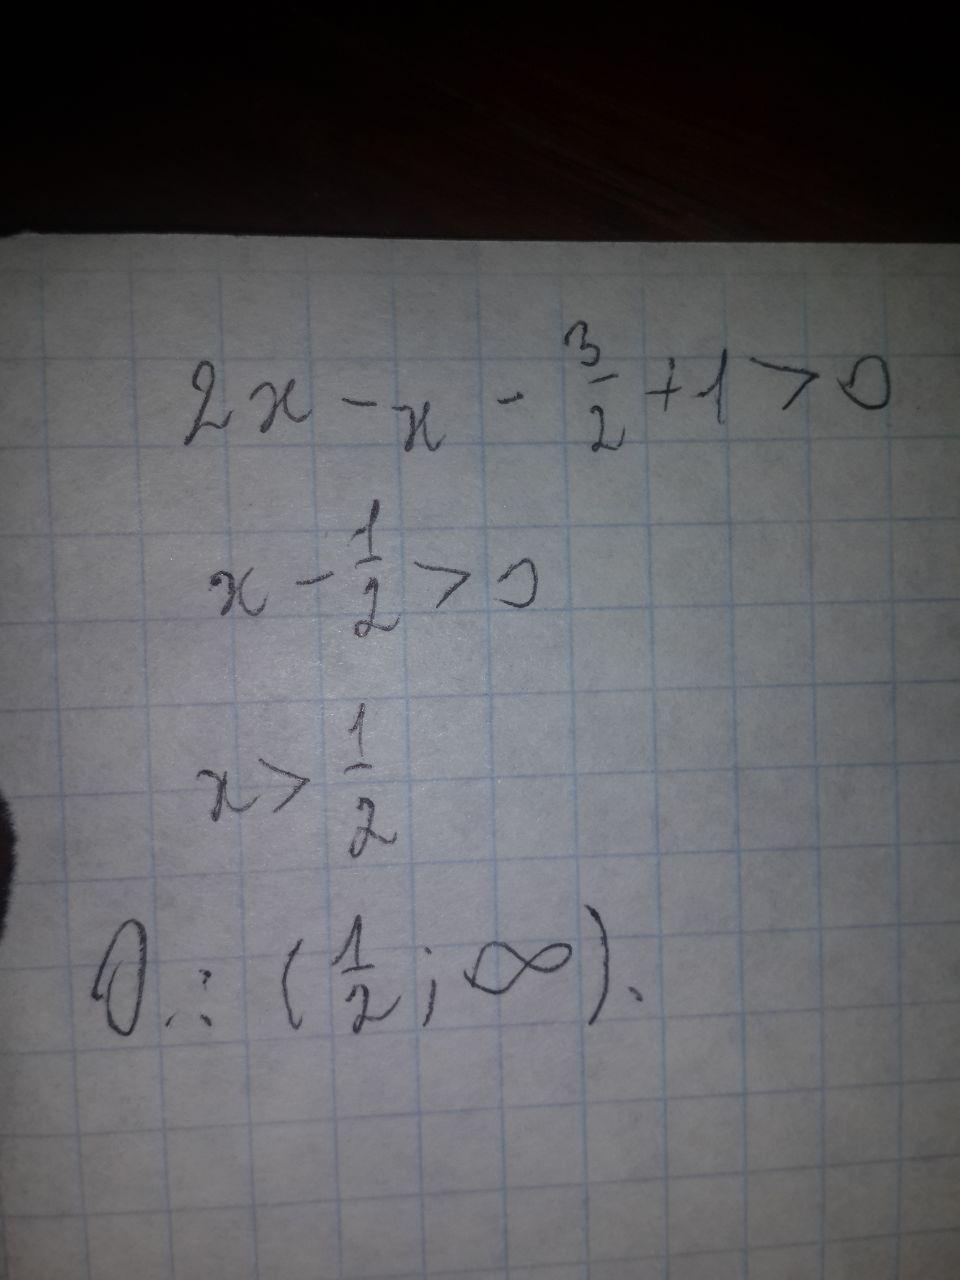 2x - x - 3/2 + 1 > 0
x - 1/2 > 0
x > 1/2
О.: (1/2; ∞).